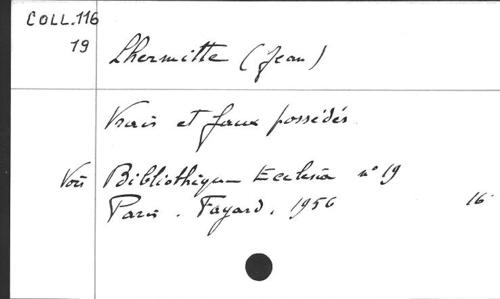 COLL.116
19
Lhermitte (Jean)
Vrais et faux possédés
Voir Bibliothèque Ecclesia n° 19
Paris. Fayard. 1956 16